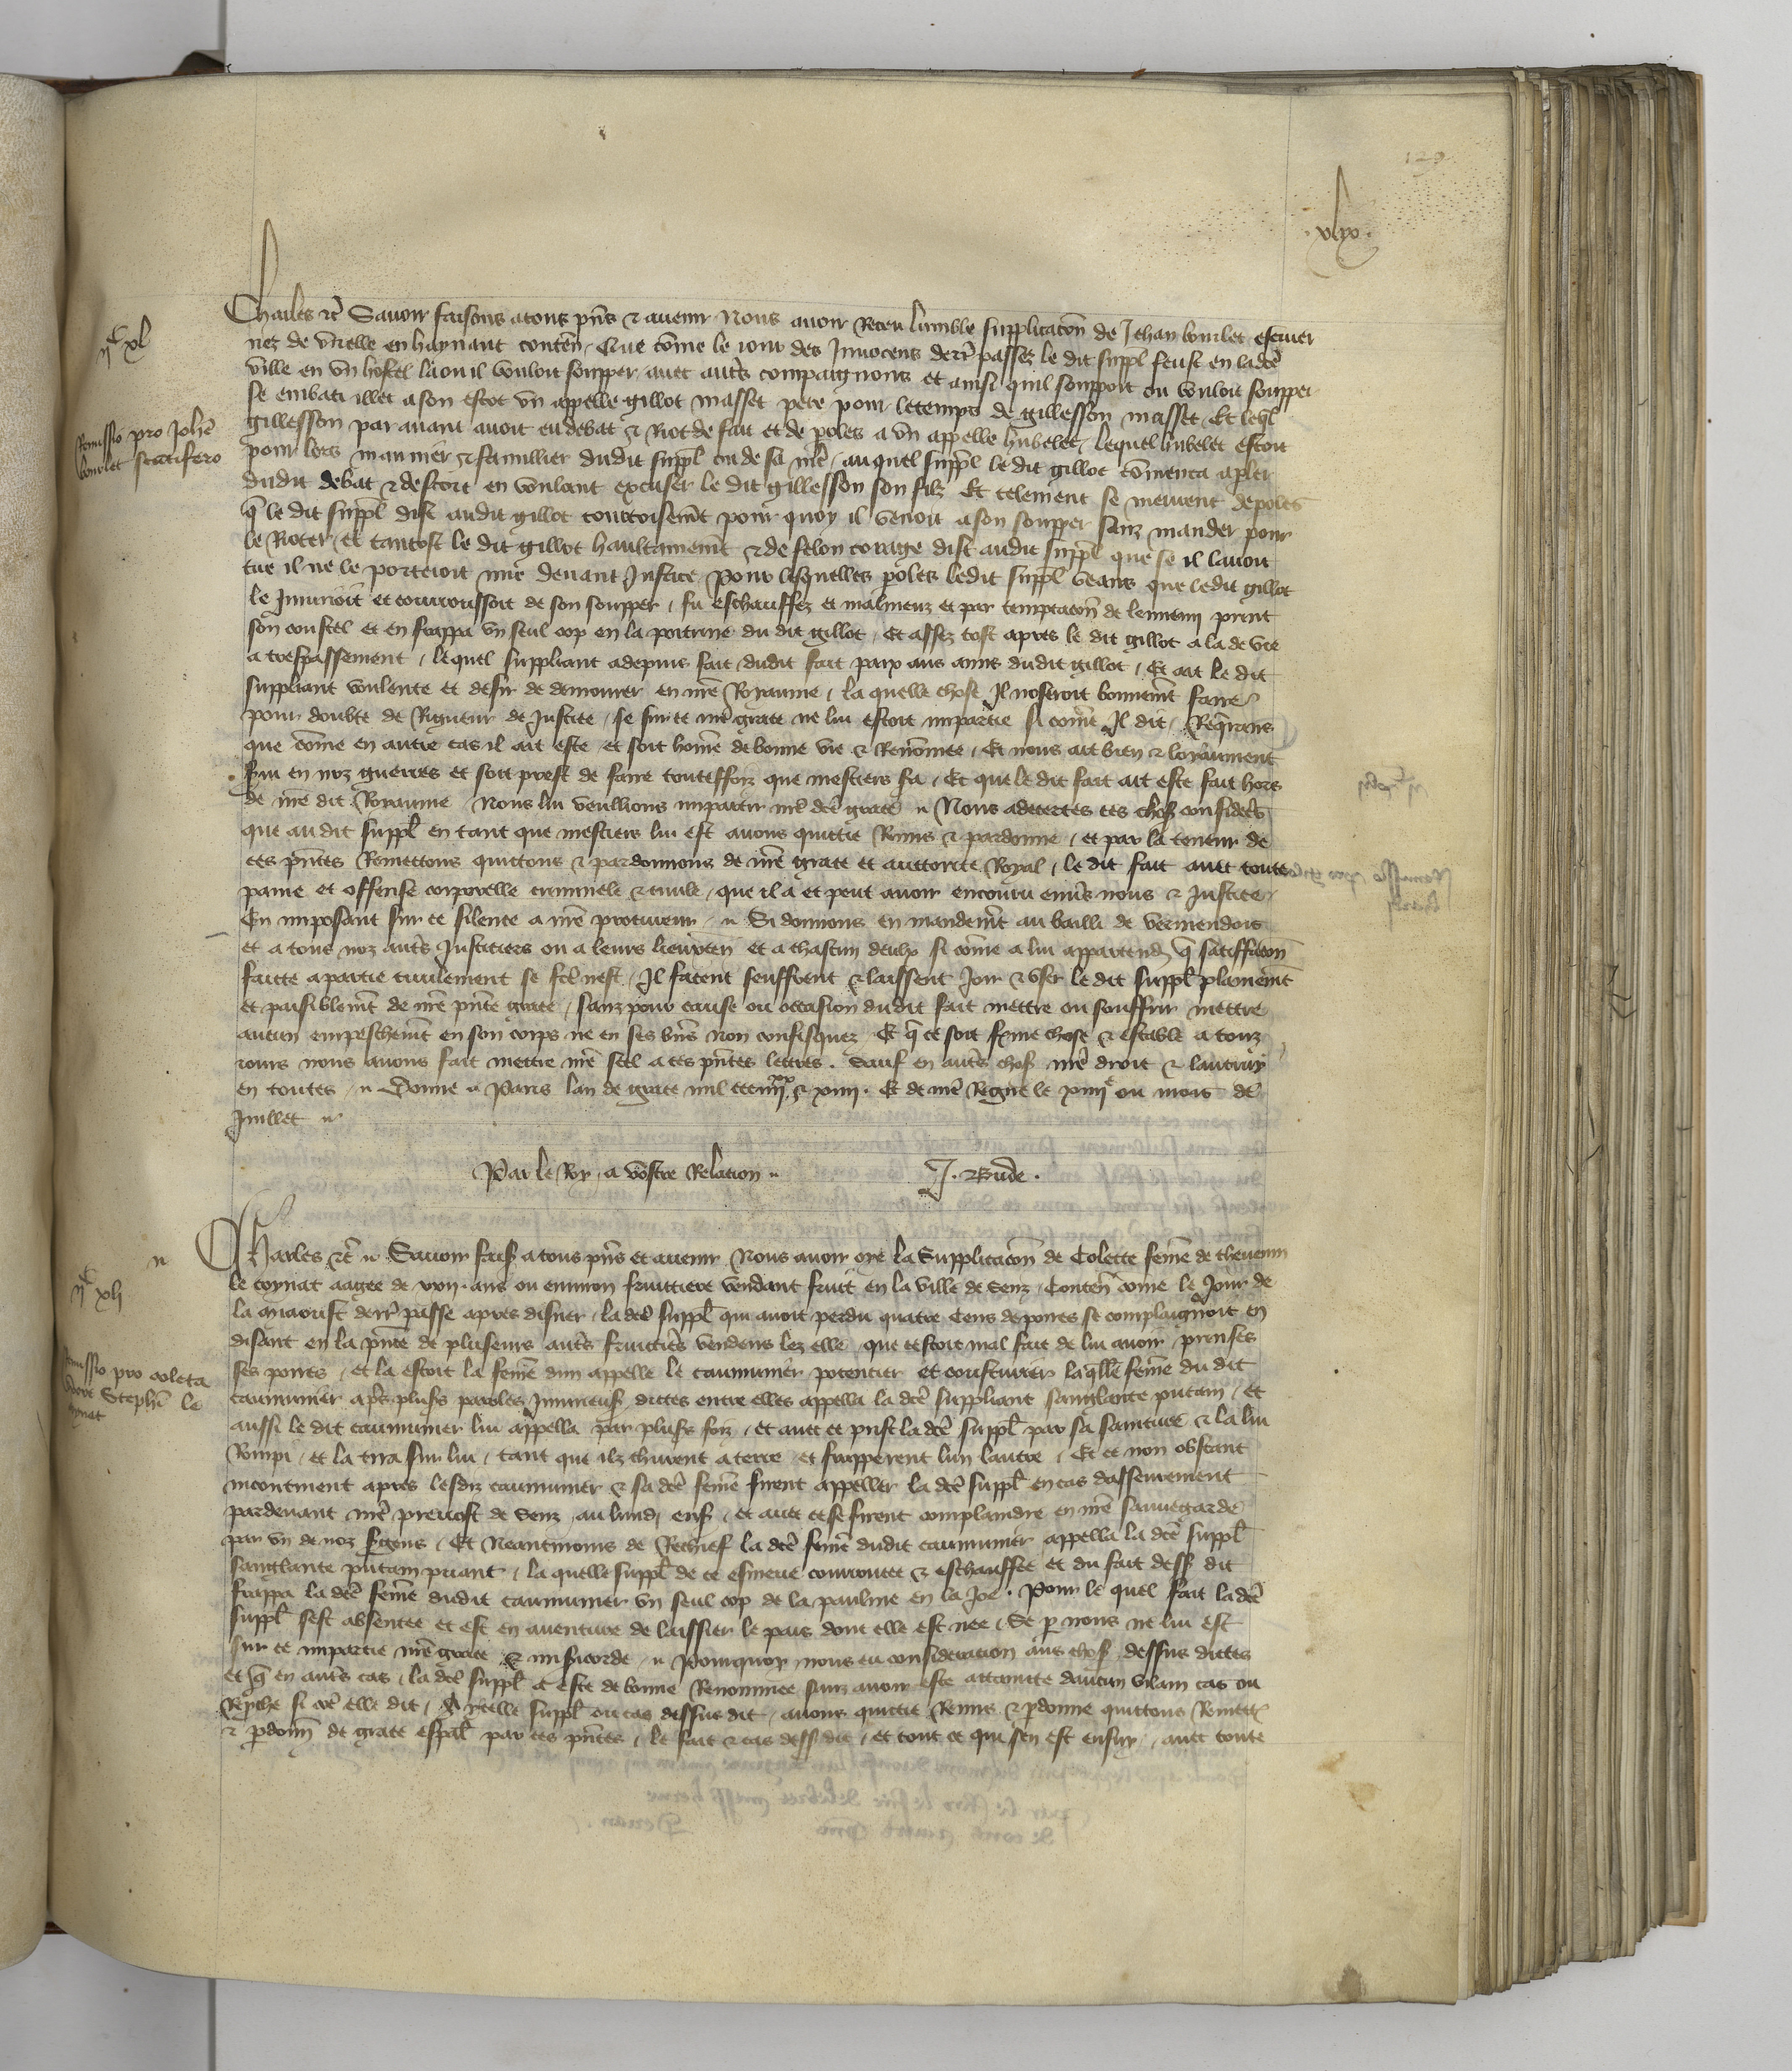 129
vixx
ii^c xl
Remissio pro Johe
bourlet scutifero
Charles etc Savoir faisons a tous pns & avenir Nous avoir Receu lumble supplicacon de Jehan bourlet escuier
nez de en haynaut conten Que come le jour des Innocens derr passez le dit suppl feust en ladce
ville en un hostel la ou il vouloit soupper avec autrs compaignons et ainsi quil souppoit ou vouloit soupper
se embati illec a son escot un appelle gillot masset pere pour letemps de gillesson masset Et leql
gillesson par avant avoit eu debat & Riot de fait et de poles a un appelle hubelet lequel hubelet estoit
pour lors & familier dudit suppl ou de sa mere auquel suppl le dit gillot comenca a pler
dudit debat & descort en voulant excuser le dit gillesson son filz Et telement se meurent de poles
q le dit suppl dist audit gillot courtoisemt pour quoy il venoit a son soupper sanz mander pour
le Rioter et tantost le dit gillot haultainemt & de felon corage dist audit suppl que se il lavoit
tue il ne le porteroit mie devant Justice Pour lesquelles poles ledit suppl veans que ledit gillot
le Injurioit et courroussoit de son soupper fu eschauffez et malmeuz et par temptacon de lennemi print
son coustel et en frappa un seul cop en la poitrine du dit gillot Et assez tost apres le dit gillot ala de vie
a trespassement lequel suppliant a depuis fait dudit fait paix aus amis dudit gillot Et ait le dit
suppliant voulente et desir de demourer en nre Royaume la quelle chose Il noseroit bonnemt faire
pour doubte de Rigueur de Justice se sur ce nre grace ne lui estoit impartie si come Il dit Requerans
que come en autre cas il ait este et soit home de bonne vie & Renommee Et nous ait bien & loyaument
servi en noz guerres et soit prest de faire touteffoiz que mestiers sera Et que le dit fait ait este fait hors
de nre dit Royaume Nous lui veuillions impartir nre dce grace Nous adecertes ces choses considerees
que au dit suppl en tant que mestiers lui est avons quittie Remis & pardonne et par la teneur de
ces pntes Remettons quittons & pardonnons de nre grace et auctorite Royal le dit fait avec toute
paine et offense corporelle criminele & civile que il a et peut avoir encouru envers nous & Justice
En imposant sur ce silence a nre procureur Si donnons en mandemt au bailli de vermendois
et a tous noz autrs Justiciers ou a leurs lieuxten et a chascun deulx si come a lui appartendra q satisffacon
faitte a partie civilement se fce nest Il facent seuffrent & laissent Joir & user le dit suppl plainemt
et paisiblemt de nre pnte grace sanz pour cause ou occasion dudit fait mettre ou souffrir mettre
aucun empeschemt en son corps ne en ses bns non confisquez Et q ce soit ferme chose & estable a touz
jours nous avons fait mettre nre scel a ces pntes lettres. Sauf en autrs choses nre droit & lautruy
en toutes Donne a Paris lan de grace mil ccc iiii^xx & xiiii. Et de nre Regne le xiiii^e ou mois de
Juillet
Par le Roy a vostre Relacion J. Bude.
ii^c xli
Remissio pro coleta
uxore Stephi le
coynat
Charles etc Savoir fais a tous pns et avenir Nous avoir oye la Supplicacon de Colette feme de thevenin
le coynat aagee de xxii. ans ou environ fruittiere vendant fruit en la ville de Senz Conten come le Jour de
la derr passe apres disner la dce suppl qui avoit perdu quatre Cens de poires se complaignoit en
disant en la pnce de pluseurs autrs fruitiers vendens lez elle que cestoit mal fait de lui avoir prinses
ses poires et la estoit la feme dun appelle le caumunier potencier et cousturier laqlle feme du dit
caumunier aprs plus paroles Injurieuses dictes entre elles appella la dce suppliant sanglante putain et
aussi le dit caumunier lui appella par plus foiz et avec ce prist la dce suppl par sa sainture & la lui
Rompi et la tira sur lui tant que ilz churent a terre et frapperent lun lautre Et ce non obstant
incontinent apres lesdiz caumunier & sa dce feme firent appeller la dce suppl en cas dasseurement
pardevant nre prevost de Senz au lundi ens et avec ce se firent complaindre en nre sauvegarde
par un de noz sergens Et Neantmoins de Rechief la dce feme dudit caumunier appella la dce suppl
sanglante putain puant la quelle suppl de ce esmeue courroucee & eschauffee et du fait dess dit
frappa la dce feme dudit caumunier un seul cop de la paulme en la Joe. Pour le quel fait ladce
suppl sest absentee et est en aventure de laissier le pais dont elle est nee Se p nous ne lui est
sur ce impartie nre grace & misericorde Pourquoy nous eu consideracion aus choses dessus dictes
et q en autrs cas la dce suppl a este de bonne Renommee sanz avoir este attainte daucun vilain cas ou
Reprouche si come elle dit A icelle suppl ou cas dessus dit avons quittie Remis & pdonne quittons Remett
& pdonn de grace espal par ces pntes le fait & cas dess dit et tout ce qui sen est ensuy avec toute